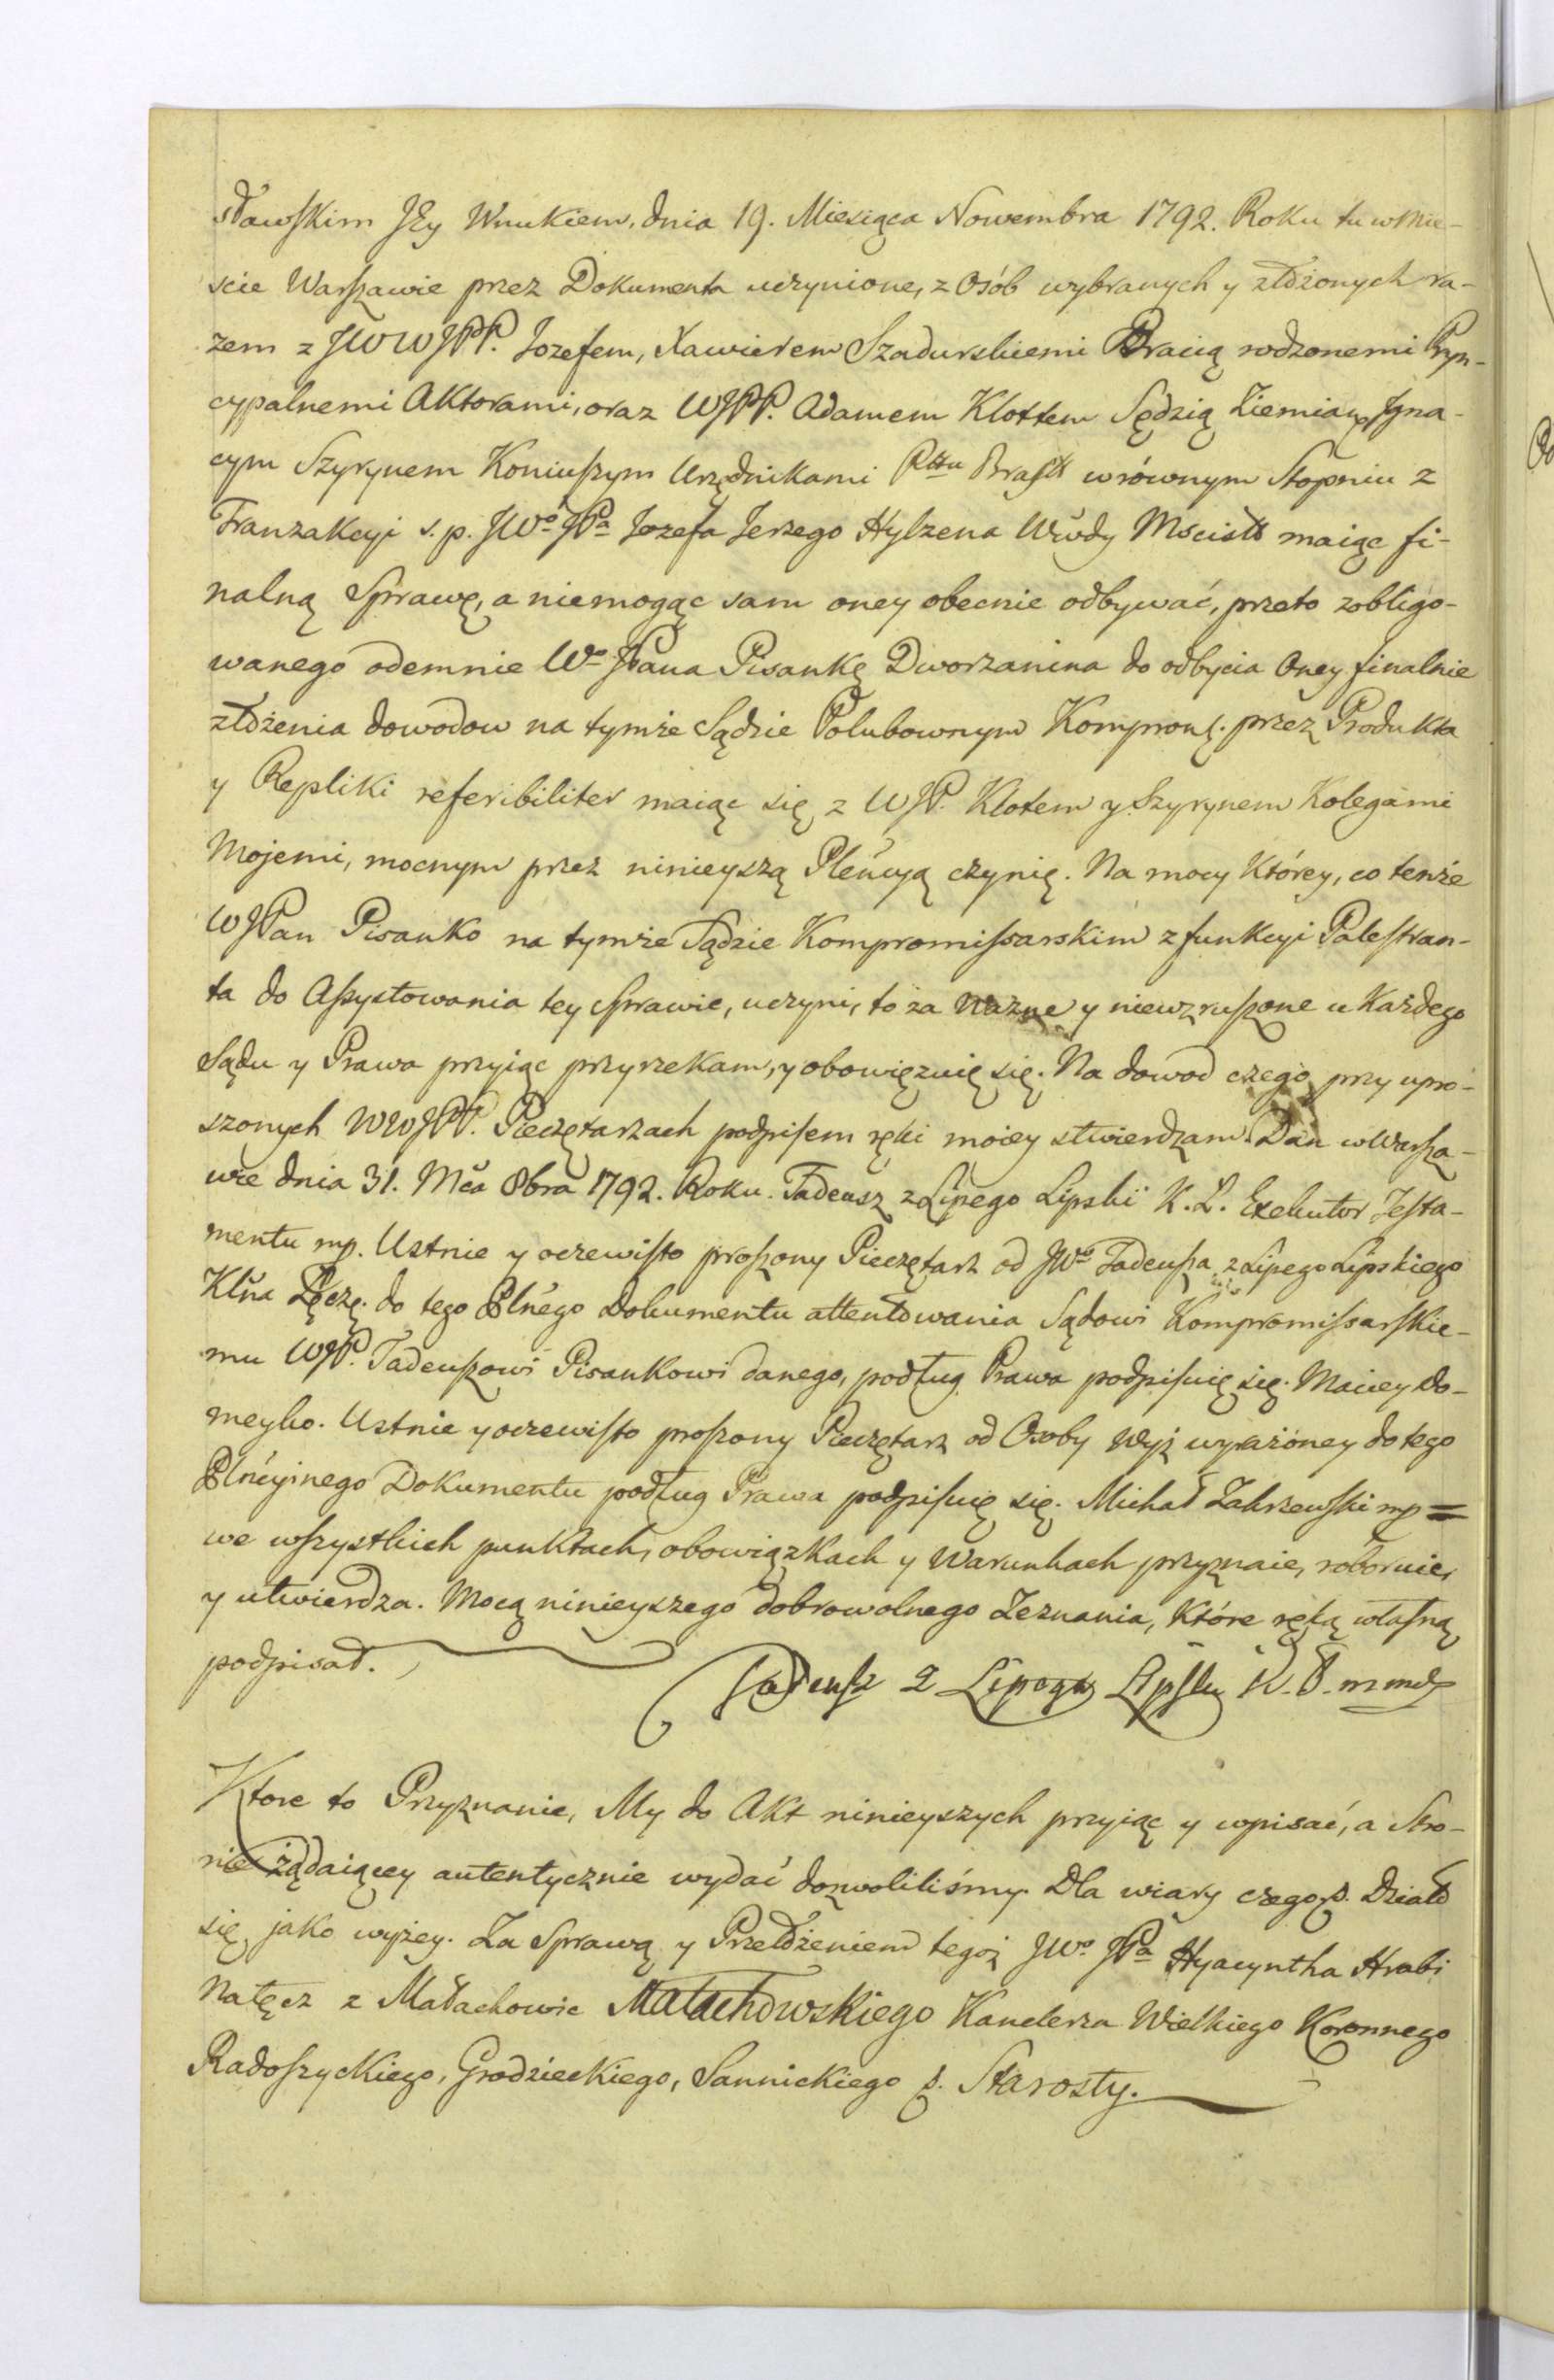 sławskim JEy Wnukiem, dnia 19. Miesiąca Nowembra 1792. Roku tu w Mie-
scie Warszawie przez Dokumenta uczynione, z Osób wybranych y złożonych ra-
zem z JWWJPP. Jozefem, Xawierem Szadurskiemi Bracią rodzonemi Pryn-
cypalnemi Aktorami, oraz WJPP. Adamem Klottem Sędzią Ziemian, Igna-
cym Szyrynem Koniuszym Urzędnikami Pttu Brasł w równym Stopniu z
Tranzakcyi s. p. JWo JPa Jozefa Jerzego Hylzena Wwdy Mscisł maiąc fi-
nalną Sprawę, a niemogąc sam oney obecnie odbywać, przeto zobligo-
wanego odemnie Wo JPana Pisankę Dworzanina do odbycia Oney finalnie
złożenia dowodow na tymże Sądzie Polubownym Kompromis. przez Produkta
y Repliki referibiliter maiąc się z WJP. Klotem y Szyrynem Kolegami
Mojemi, mocnym przez ninieyszą Pleńcyą czynię. Na mocy Którey, co tenże
WJPan Pisanko na tymże Sądzie Kompromissarskim z funkcyi Palestran-
ta do Assystowania tey Sprawie, uczyni, to za Ważne y niewzruszone u Każdego
Sądu y Prawa przyiąc przyrzekam, y obowięzuię się. Na dowod czego przy upro-
szonych WWJPP. Pieczętarzach podpisem ręki moiey stwierdzam. Dan w Warsza-
wie dnia 31. Mca 8bra 1792. Roku. Tadeusz z Lipego Lipski K. Ł. Exekutor Testa-
mentu mp. Ustnie y oczewisto proszony Pieczętarz od JWo Tadeusza z Lipego Lipskiego
Kłna Łęczę. do tego Plnego Dokumentu attentowania Sądowi Kompromissarskie-
mu WJP. Tadeuszowi Pisankowi danego, podług Prawa podpisuię się. Maciey Do-
meyko. Ustnie y oczewisto proszony Pieczętarz od Osoby Wyż wyrażoney do tego
Plncyinego Dokumentu podług Prawa podpisuię się. Michał Zakrzewski mp =
we wszystkich punktach, obowiązkach y Warunkach przyznaie, roboruie,
y utwierdza. Mocą ninieyszego dobrowolnego Zeznania, Które ręką własną
podpisał.
Tadeusz z Lipego Lipski K. Ł. mp
Ktore to Przyznanie, My do Akt ninieyszych przyiąc y wpisać, a Stro-
nie żądaiącey autentycznie wydać dozwoliliśmy. Dla wiary czego &. Działo
się jako wyżey. Za Sprawą y Przełożeniem tegoż JWo JPa Hyacyntha Hrabi
Nałęcz z Małachowic Małachowskiego Kanclerza Wielkiego Koronnego
Radoszyckiego, Grodzieckiego, Sannickiego &. Starosty.